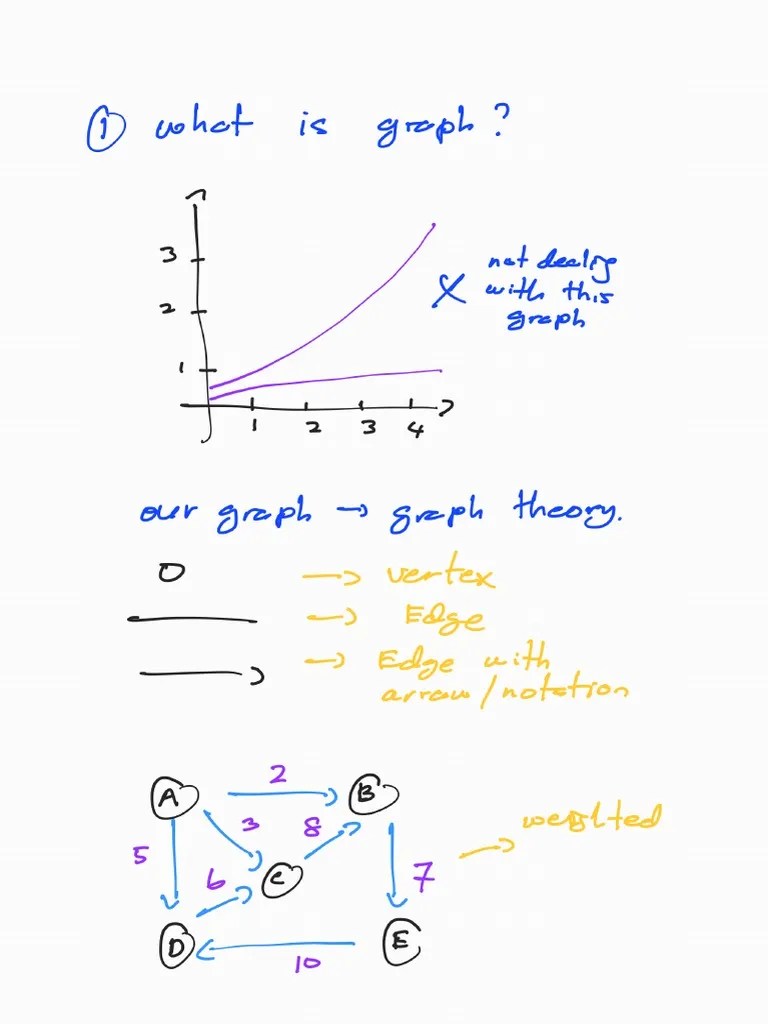 ① what is graph?
3
2
1
1 2 3 4
not dealing
with this
graph
our graph → graph theory.
→ vertex
→ Edge
→ Edge with
arrow/notation
A 2 B
5 3 8
6 C 7
weighted
D 10 E